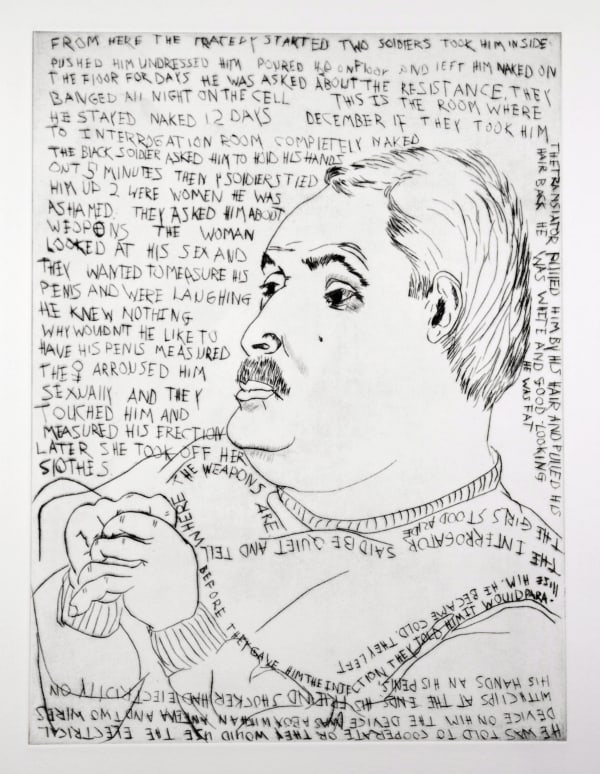 FROM HERE THE TRAGEDY STARTED TWO SOLDIERS TOOK HIM INSIDE
PUSHED HIM UNDRESSED HIM POURED H2O ON FLOOR AND LEFT HIM NAKED ON
THE FLOOR FOR DAYS HE WAS ASKED ABOUT THE RESISTANCE, THEY
BANGED All NIGHT ON THE CELL THIS IS THE ROOM WHERE
HE STAYED NAKED 12 DAYS DECEMBER IF THEY TOOK HIM
TO INTERROGATION ROOM COMPLETELY NAKED
THE BLACK SOLDIER ASKED HIM TO HOLD HIS HANDS
OUT 5 MINUTES THEN SOLDIERS TIED
HIM UP 2 WERE WOMEN HE WAS
ASHAMED. THEY ASKED HIM ABOUT
WEOPONS THE WOMAN
LOOKED AT HIS SEX AND
THEY WANTED TO MEASURE HIS
PENIS AND WERE LAUGHING
HE KNEW NOTHING
WHY WOULDNT HE LIKE TO
HAVE HIS PENIS MEASURED
THE ♀ ARROUSED HIM
SEXUALLY AND THEY
TOUCHED HIM AND
MEASURED HIS ERECTION
LATER SHE TOOK OFF HER
SLOTHES
THE TRANSLATOR PULLED HIM BY HIS HAIR AND PULLED HIS
HAIR BACK HE WAS WHITE AND GOOD LOOKING
HE WAS FAT
THE GIRLS STOOD ASIDE
THE INTERROGATOR SAID BE QUIET AND TELL
WHERE THE WEAPONS ARE
BEFORE THEY GAVE HIM THE INJECTION THEY TOLD HIM IT WOULD PARA-
LIZE HIM. HE BECAME COLD THEY LEFT
HE WAS TOLD TO COOPERATE OR THEY WOULD USE THE ELECTRICAL
DEVICE ON HIM THE DEVICE WAS A BOX WITH AN ANTENA AND TWO WIRES
WITH CLIPS AT THE ENDS HIS FRIEND SHOCKER HAD ELECTRICITY ON
HIS HANDS AN HIS PENIS